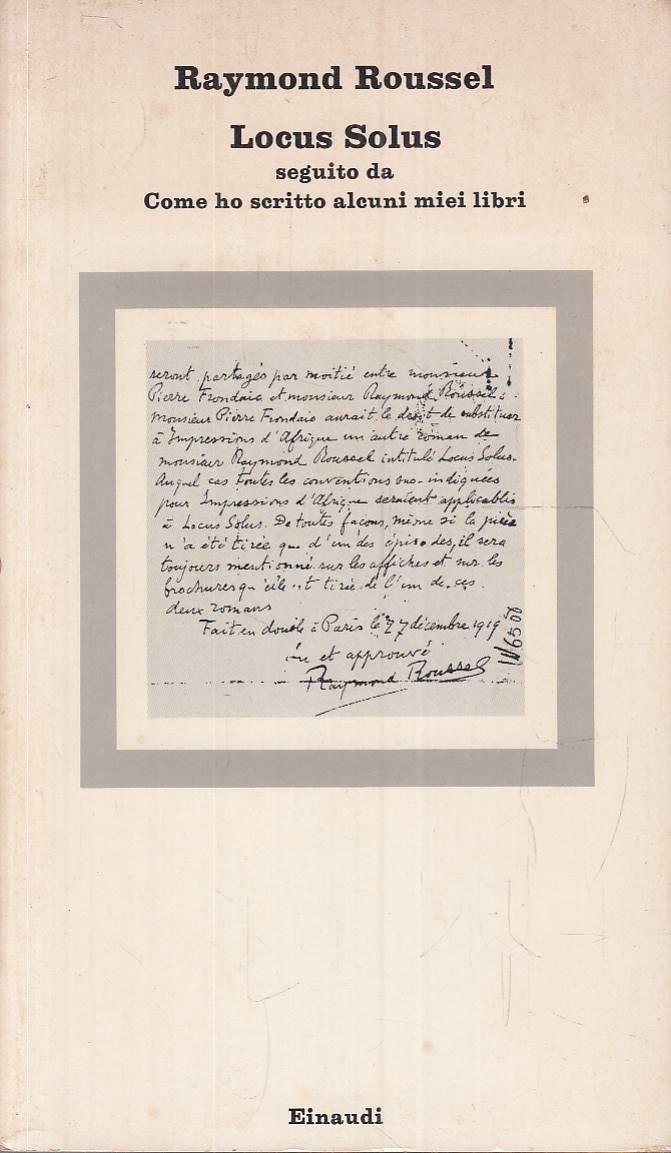 Raymond Roussel
Locus Solus
seguito da
Come ho scritto alcuni miei libri
seront partagés par moitié entre monsieur
Pierre Frondaie et monsieur Raymond Roussel :
Monsieur Pierre Frondaie aurait le droit de substituer
à Impressions d'Afrique un autre roman de
monsieur Raymond Roussel intitulé Locus Solus.
Auquel cas toutes les conventions sus-indiquées
pour Impressions d'Afrique seraient applicables
à Locus Solus. De toutes façons, même si la pièce
n'a été tirée que d'un des épisodes, il sera
toujours mentionné sur les affiches et sur les
brochures qu'elle est tirée de l'un de ces
deux romans
Fait en double à Paris le 27 décembre 1919
Lu et approuvé
Raymond Roussel
Einaudi